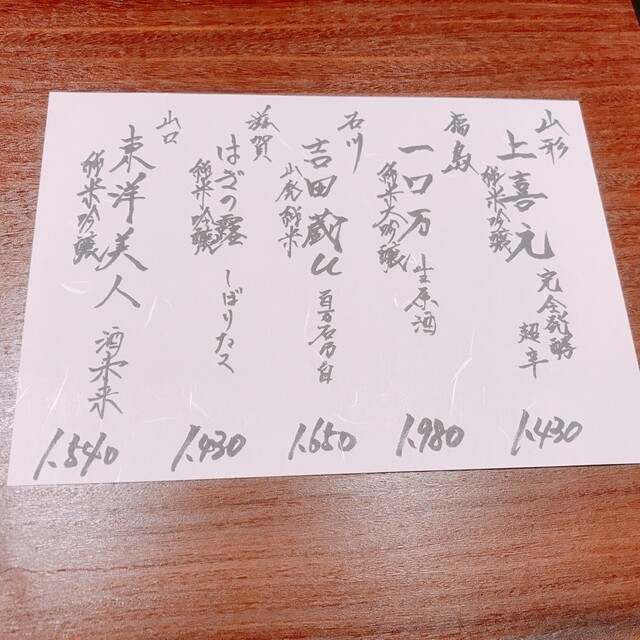 山形
上喜元
純米吟醸
完全発酵
超辛
1.430
福島
一口万
純米大吟醸
生原酒
1.980
石川
吉田蔵u
山廃純米
百万石乃白
1.650
滋賀
純米吟醸
しぼりたて
1.430
山口
東洋美人
純米吟醸
酒未来
1.540